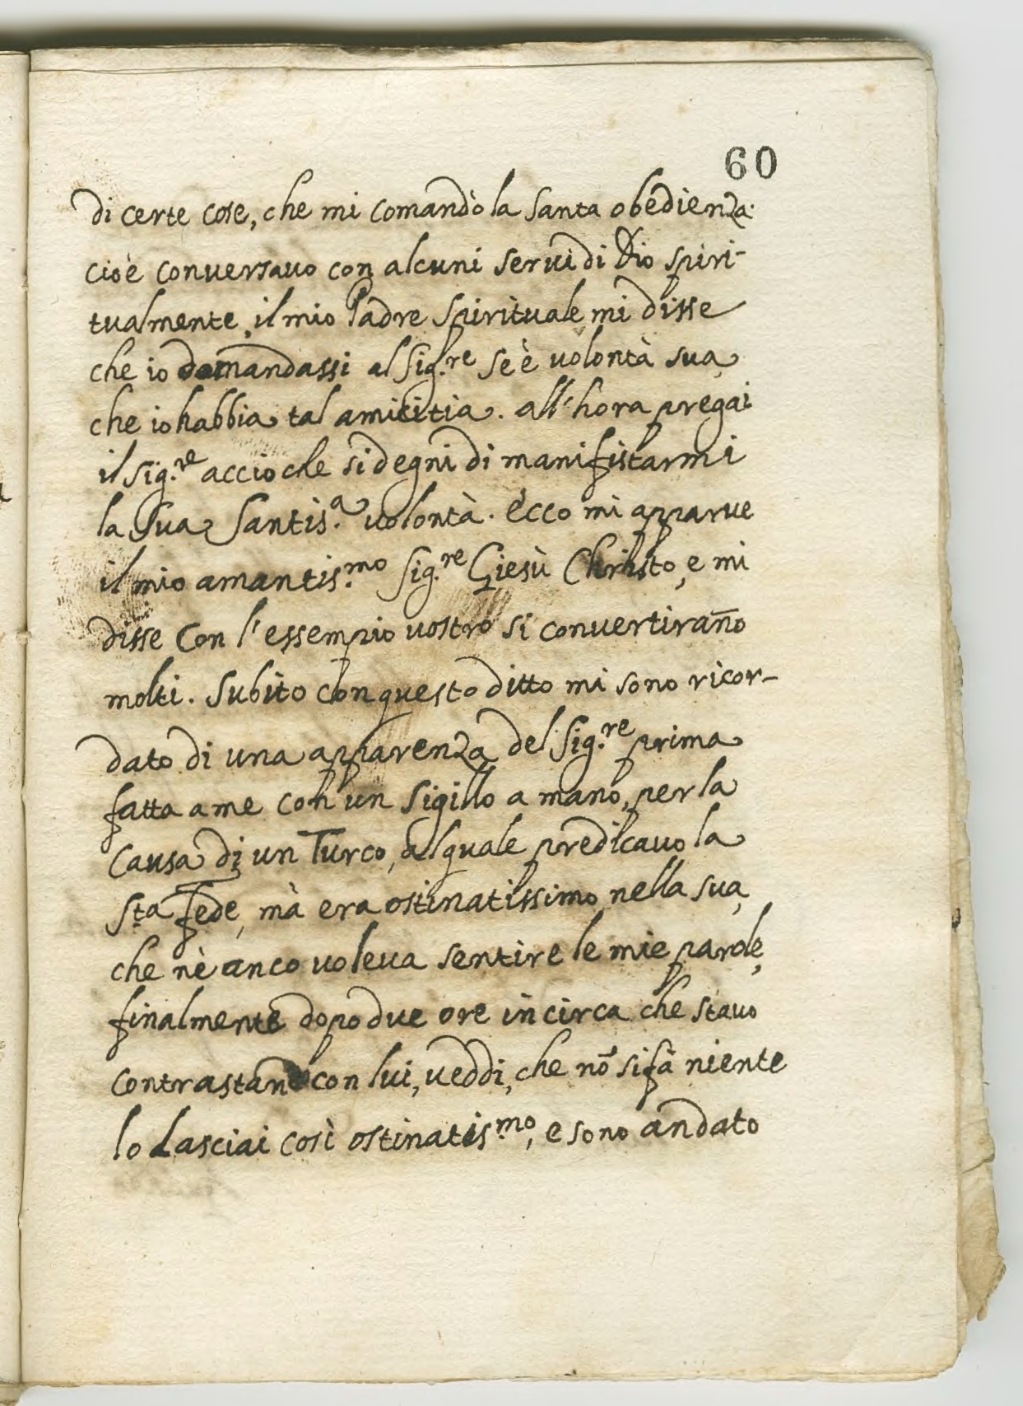 60
di certe cose, che mi comandò la santa obedienza:
cioè conversavo con alcuni servi di Dio spiri-
tualmente, il mio Padre Spirituale mi disse
che io domandassi al Sig.re se è volontà sua,
che io habbia tal amicitia. all'hora pregai
il Sig.re acciò che si degni di manifistarmi
la Sua Santis.a volontà. ècco mi apparve
il mio amantis.mo Sig.re Giesù Christo, e mi
disse Con l'essempio vostro si convertirañ̃o
molti. Subito con questo ditto mi sono ricor-
dato di una apparenza del Sig.re prima
fatta a me con un sigillo a mano, per la
causa di un Turco, al quale predicavo la
S.ta Fede, mà era ostinatissimo nella sua,
che nè anco voleva sentire le mie parole,
finalmente dopo due ore in circa che stavo
contrastand con lui, veddi, che nõ si fà niente
lo Lasciai così ostinatis.mo, e sono andato